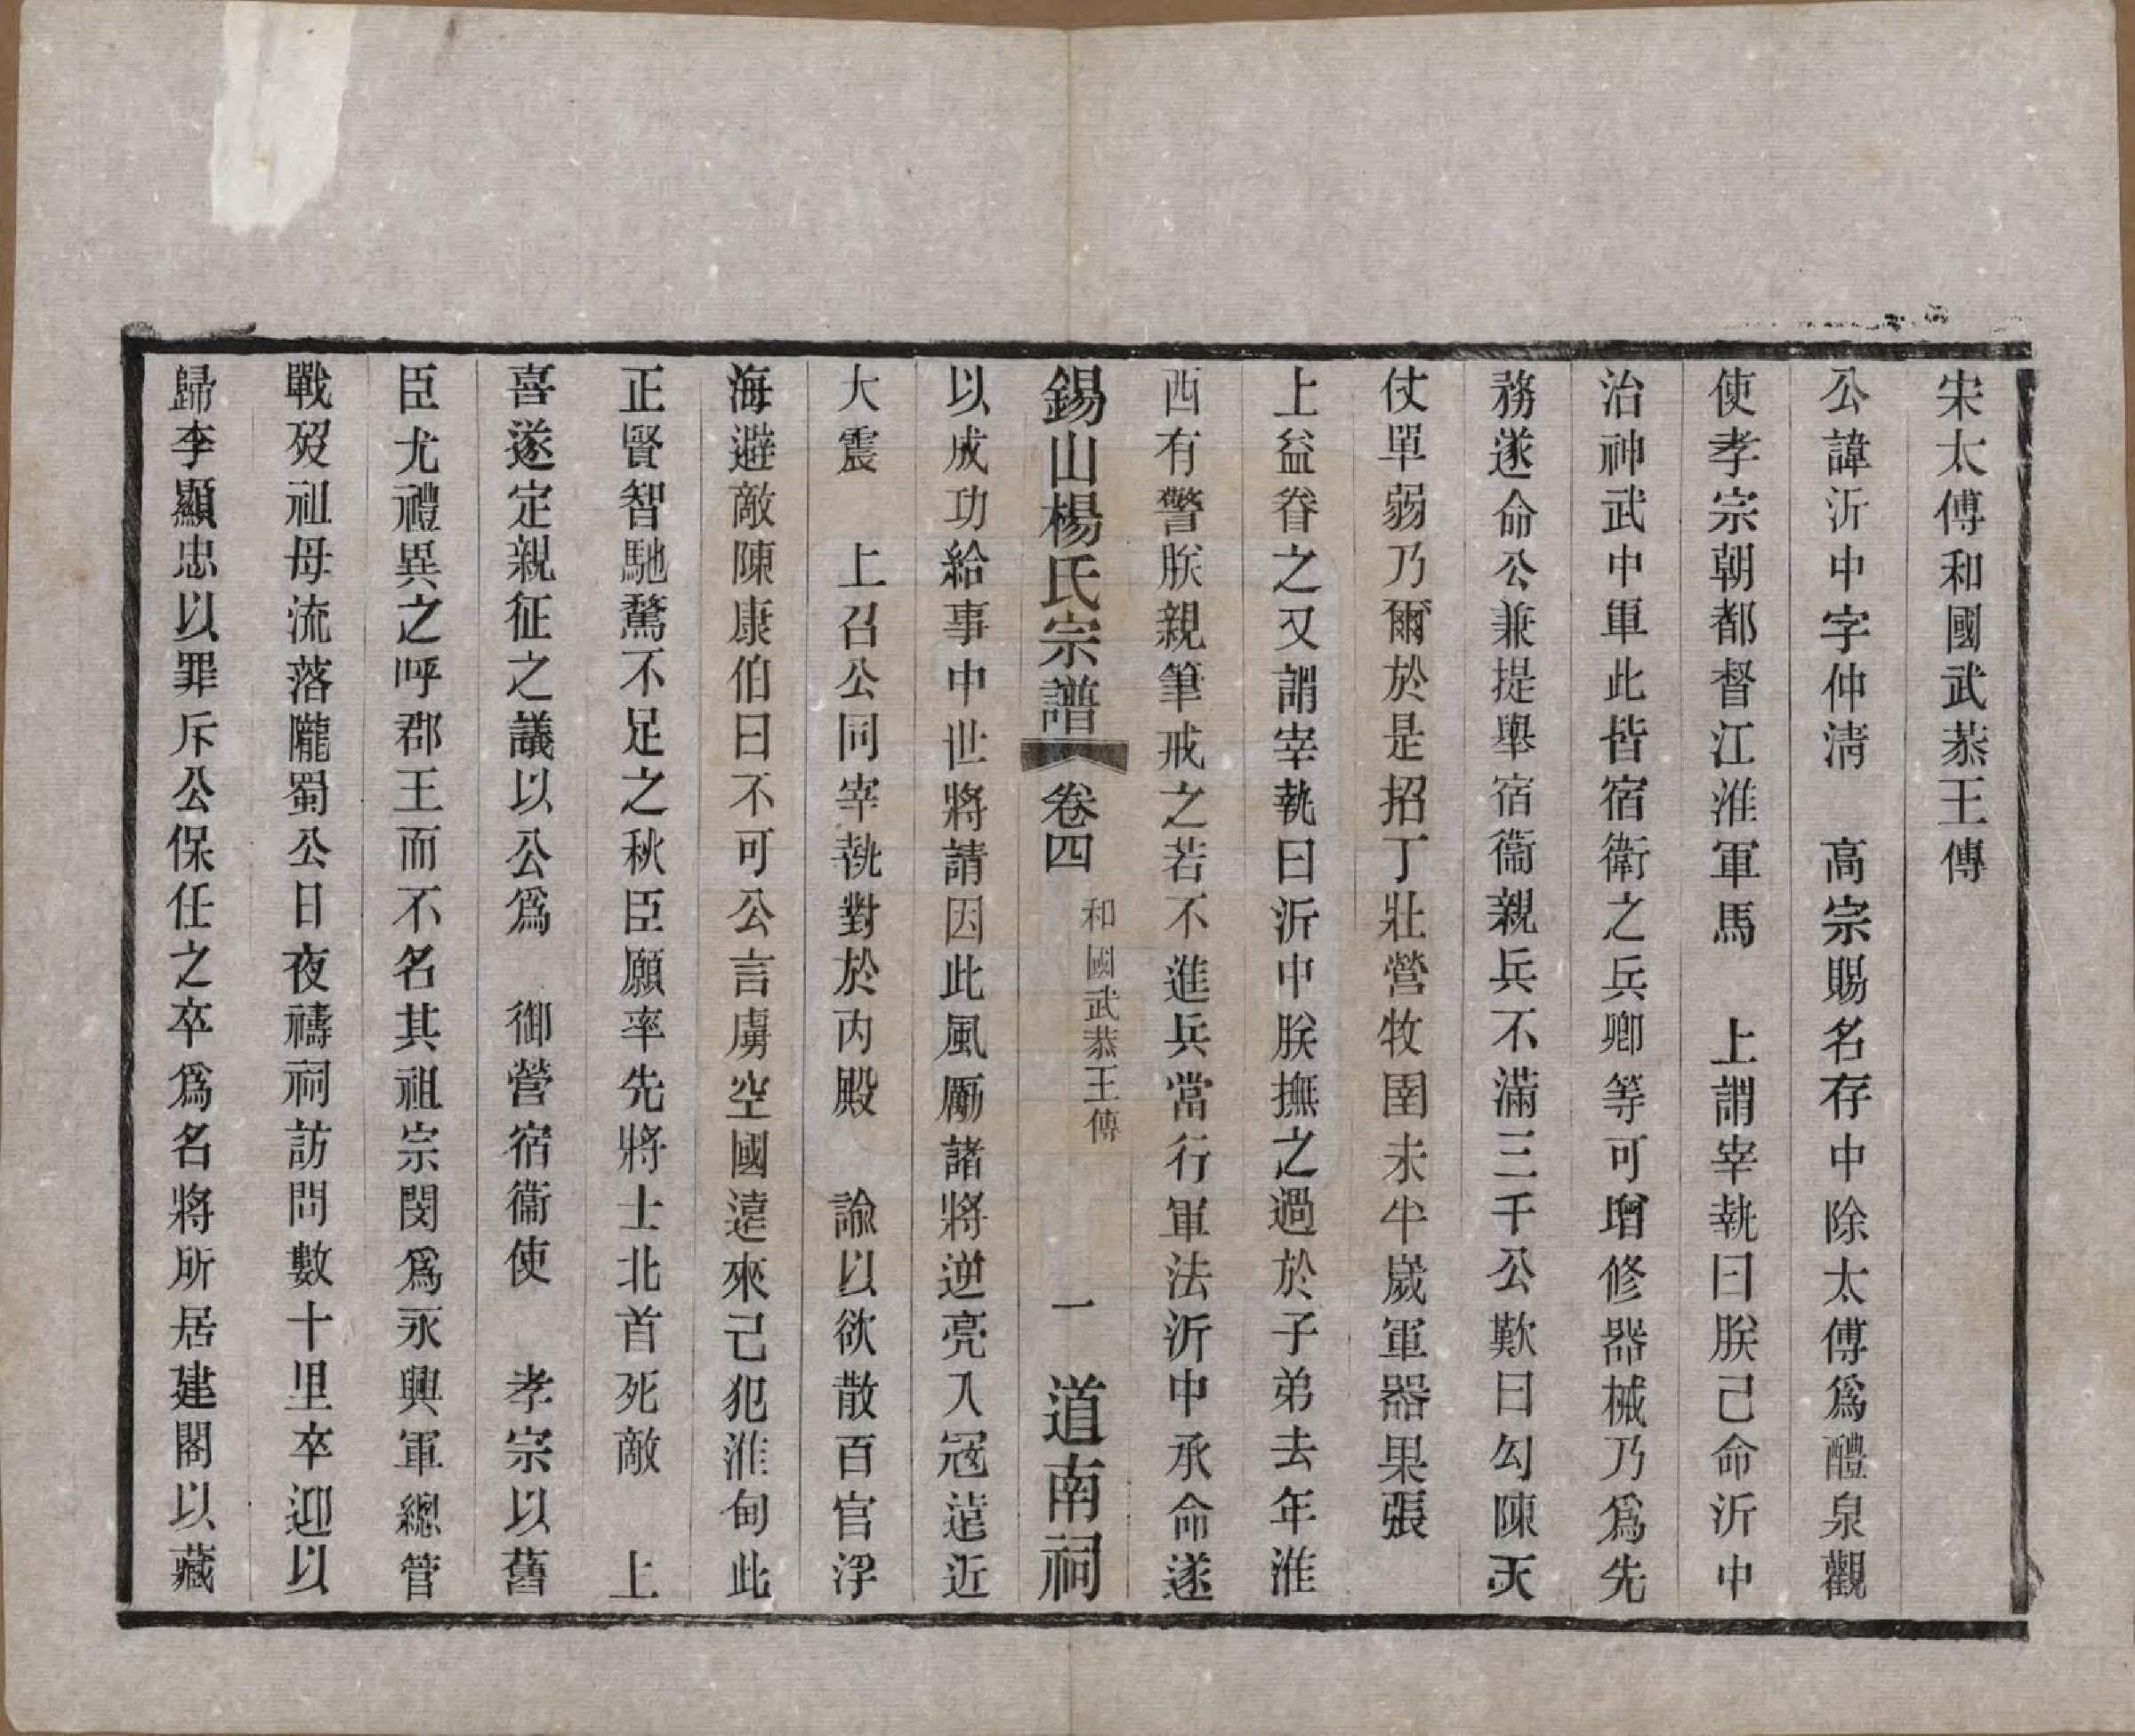 宋太傅和國武恭王傳
公諱沂中字仲淸　高宗賜名存中除太傅爲醴泉觀
使孝宗朝都督江淮軍馬　上謂宰執曰朕己命沂中
治神武中軍此皆宿衛之兵卿等可增修器械乃爲先
務遂命公兼提舉宿衞親兵不滿三千公歎曰勾陳天
仗單弱乃爾於是招丁壯營牧圉未半嵗軍器果張
上益眷之又謂宰執曰沂中朕撫之過於子弟去年淮
西有警朕親筆戒之若不進兵當行軍法沂中承命遂
錫山楊氏宗譜　卷四　和國武恭王傳　一　道南祠
以成功給事中世將請因此風厲諸將逆亮入冦遠近
大震　上召公同宰執對於內殿　諭以欲散百官浮
海避敵陳康伯曰不可公言虜空國遠來己犯淮甸此
正賢智馳騖不足之秋臣願率先將士北首死敵　上
喜遂定親征之議以公爲　御營宿衞使　孝宗以舊
臣尤禮異之呼郡王而不名其祖宗閔爲永興軍總管
戰歿祖母流落隴蜀公日夜禱祠訪問數十里卒迎以
歸李顯忠以罪斥公保任之卒爲名將所居建閣以藏